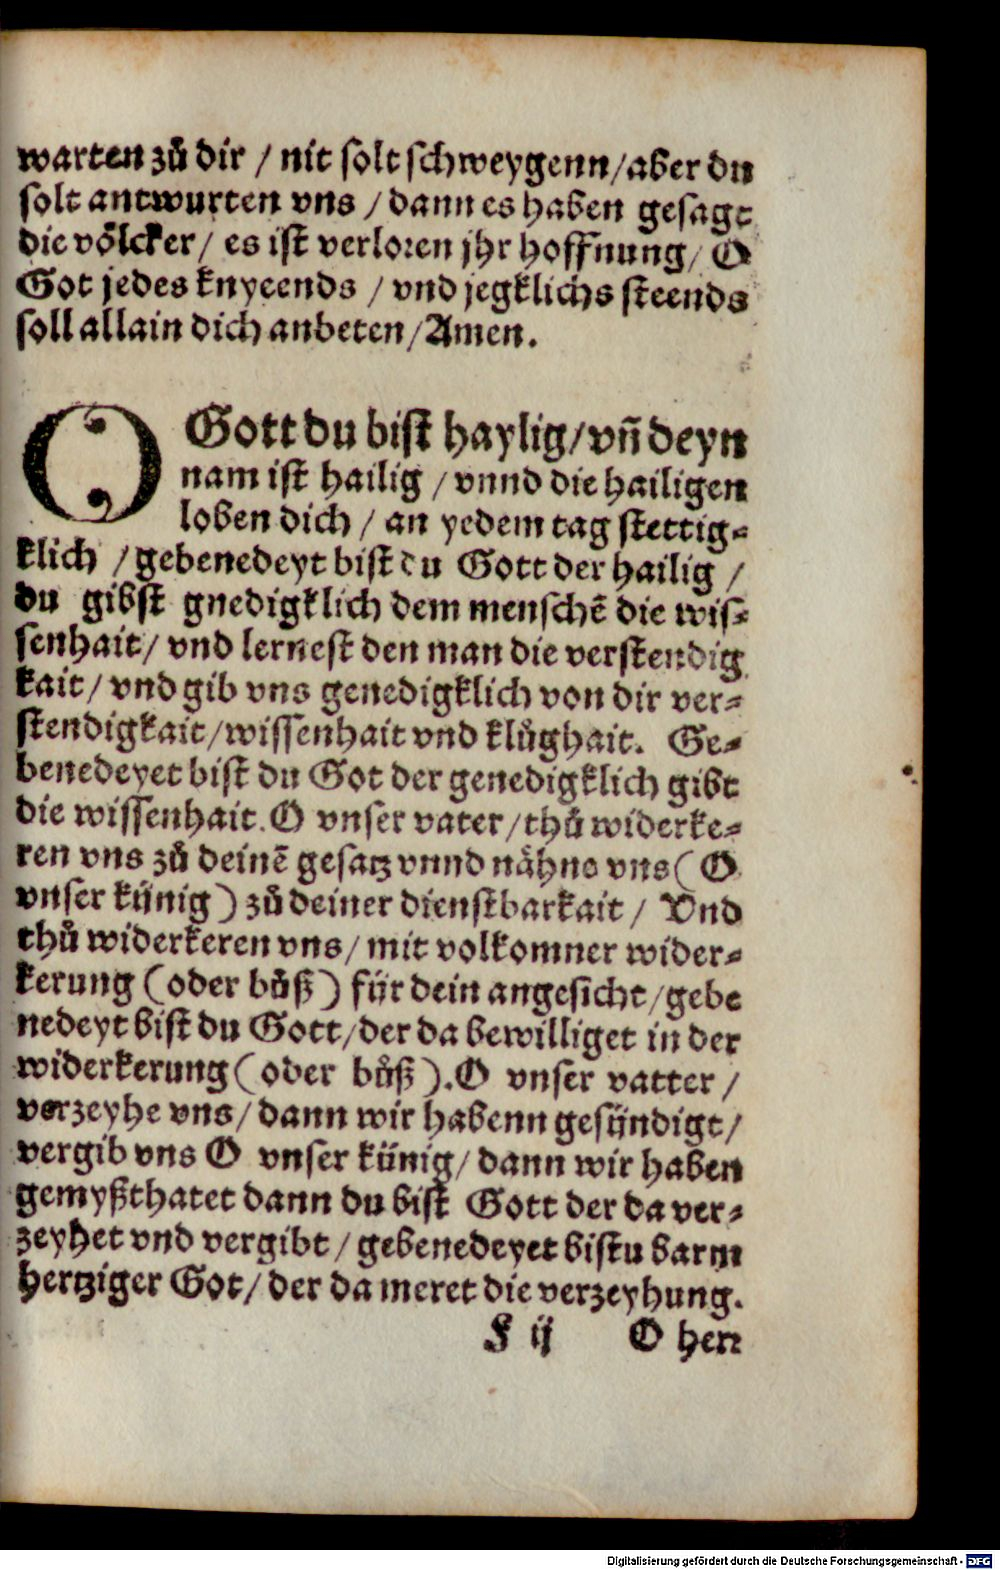 warten zů dir / nit solt schweygenn / aber du
solt antwurten vns / dann es haben gesagt
die völcker / es ist verloren jhr hoffnung / O
Got jedes knyeends / vnd jegklichs steends
soll allain dich anbeten / Amen.
O Gott du bist haylig / vñ deyn
nam ist hailig / vnnd die hailigen
loben dich / an yedem tag stettig⸗
klich / gebenedeyt bist du Gott der hailig /
du gibst gnedigklich dem menschē die wis⸗
senhait / vnd lernest den man die verstendig
kait / vnd gib vns genedigklich von dir ver⸗
stendigkait / wissenhait vnd klůghait. Ge⸗
benedeyet bist du Got der genedigklich gibt
die wissenhait. O vnser vater / thů widerke⸗
ren vns zů deinē gesatz vnnd nähne vns ( O
vnser künig ) zů deiner dienstbarkait / Vnd
thů widerkeren vns / mit volkomner wider⸗
kerung ( oder bůß ) für dein angesicht / gebe
nedeyt bist du Gott / der da bewilliget in der
widerkerung ( oder bůß ). O vnser vatter /
verzeyhe vns / dann wir habenn gesündigt /
vergib vns O vnser künig / dann wir haben
gemyßthatet dann du bist Gott der da ver⸗
zeyhet vnd vergibt / gebenedeyet bistu barm
hertziger Got / der da meret die verzeyhung.
F ij O herr
Digitalisierung gefördert durch die Deutsche Forschungsgemeinschaft - DFG